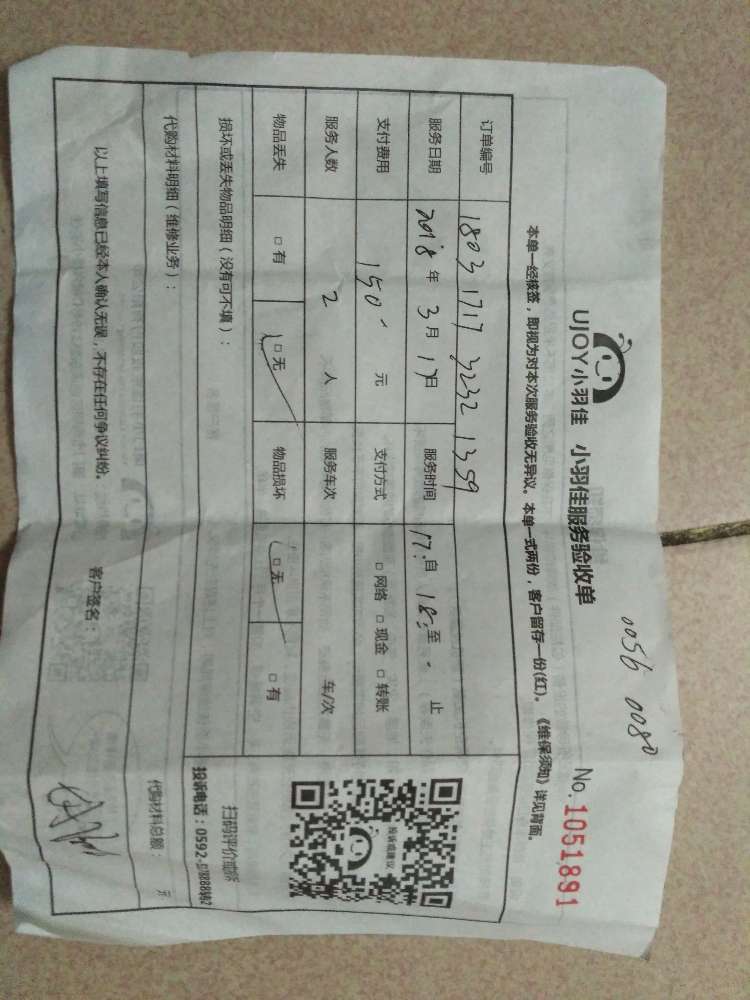 0056 0080
UJOY小羽佳 小羽佳服务验收单 No.1051891
本单一经核签，即视为对本次服务验收无异议。本单一式两份，客户留存一份(红)。《维保须知》详见背面。
订单编号 1803 1717 3232 1359
服务日期 2018年3月17日 服务时间 17:自 18:至 止
支付费用 150 元 支付方式 □ 网络 □ 现金 □ 转账
服务人数 2 人 服务车次 车/次
物品丢失 □ 有 □ 无 物品损坏 □ 无 □ 有
投诉或建议
扫码评价或
投诉电话：0592-
损坏或丢失物品明细（没有可不填）：
代购材料明细（维修业务）： 代购材料总额： 元
以上填写信息已经本人确认无误，不存在任何争议纠纷。 客户签名：